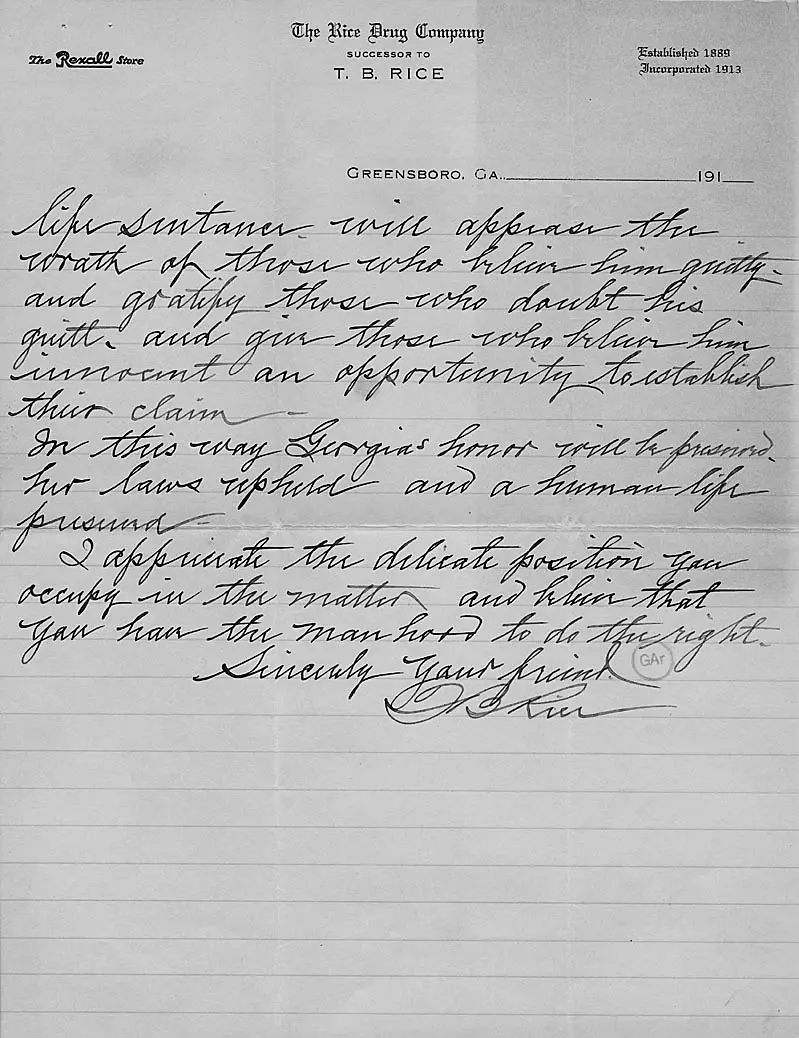 The Rice Drug Company
SUCCESSOR TO
T. B. RICE
The Rexall Store
Established 1889
Incorporated 1913
GREENSBORO, GA. 191
life sentance will appease the
wrath of those who believe him guilty-
and gratify those who doubt his
guilt. and give those who believe him
innocent an opportunity to establish
their claim -
In this way Georgia's honor will be preserved.
her laws upheld and a human life
preserved -
I appreciate the delicate position you
occupy in the matter and believe that
you have the manhood to do the right.
Sincerely your friend
GAr
T B Rice